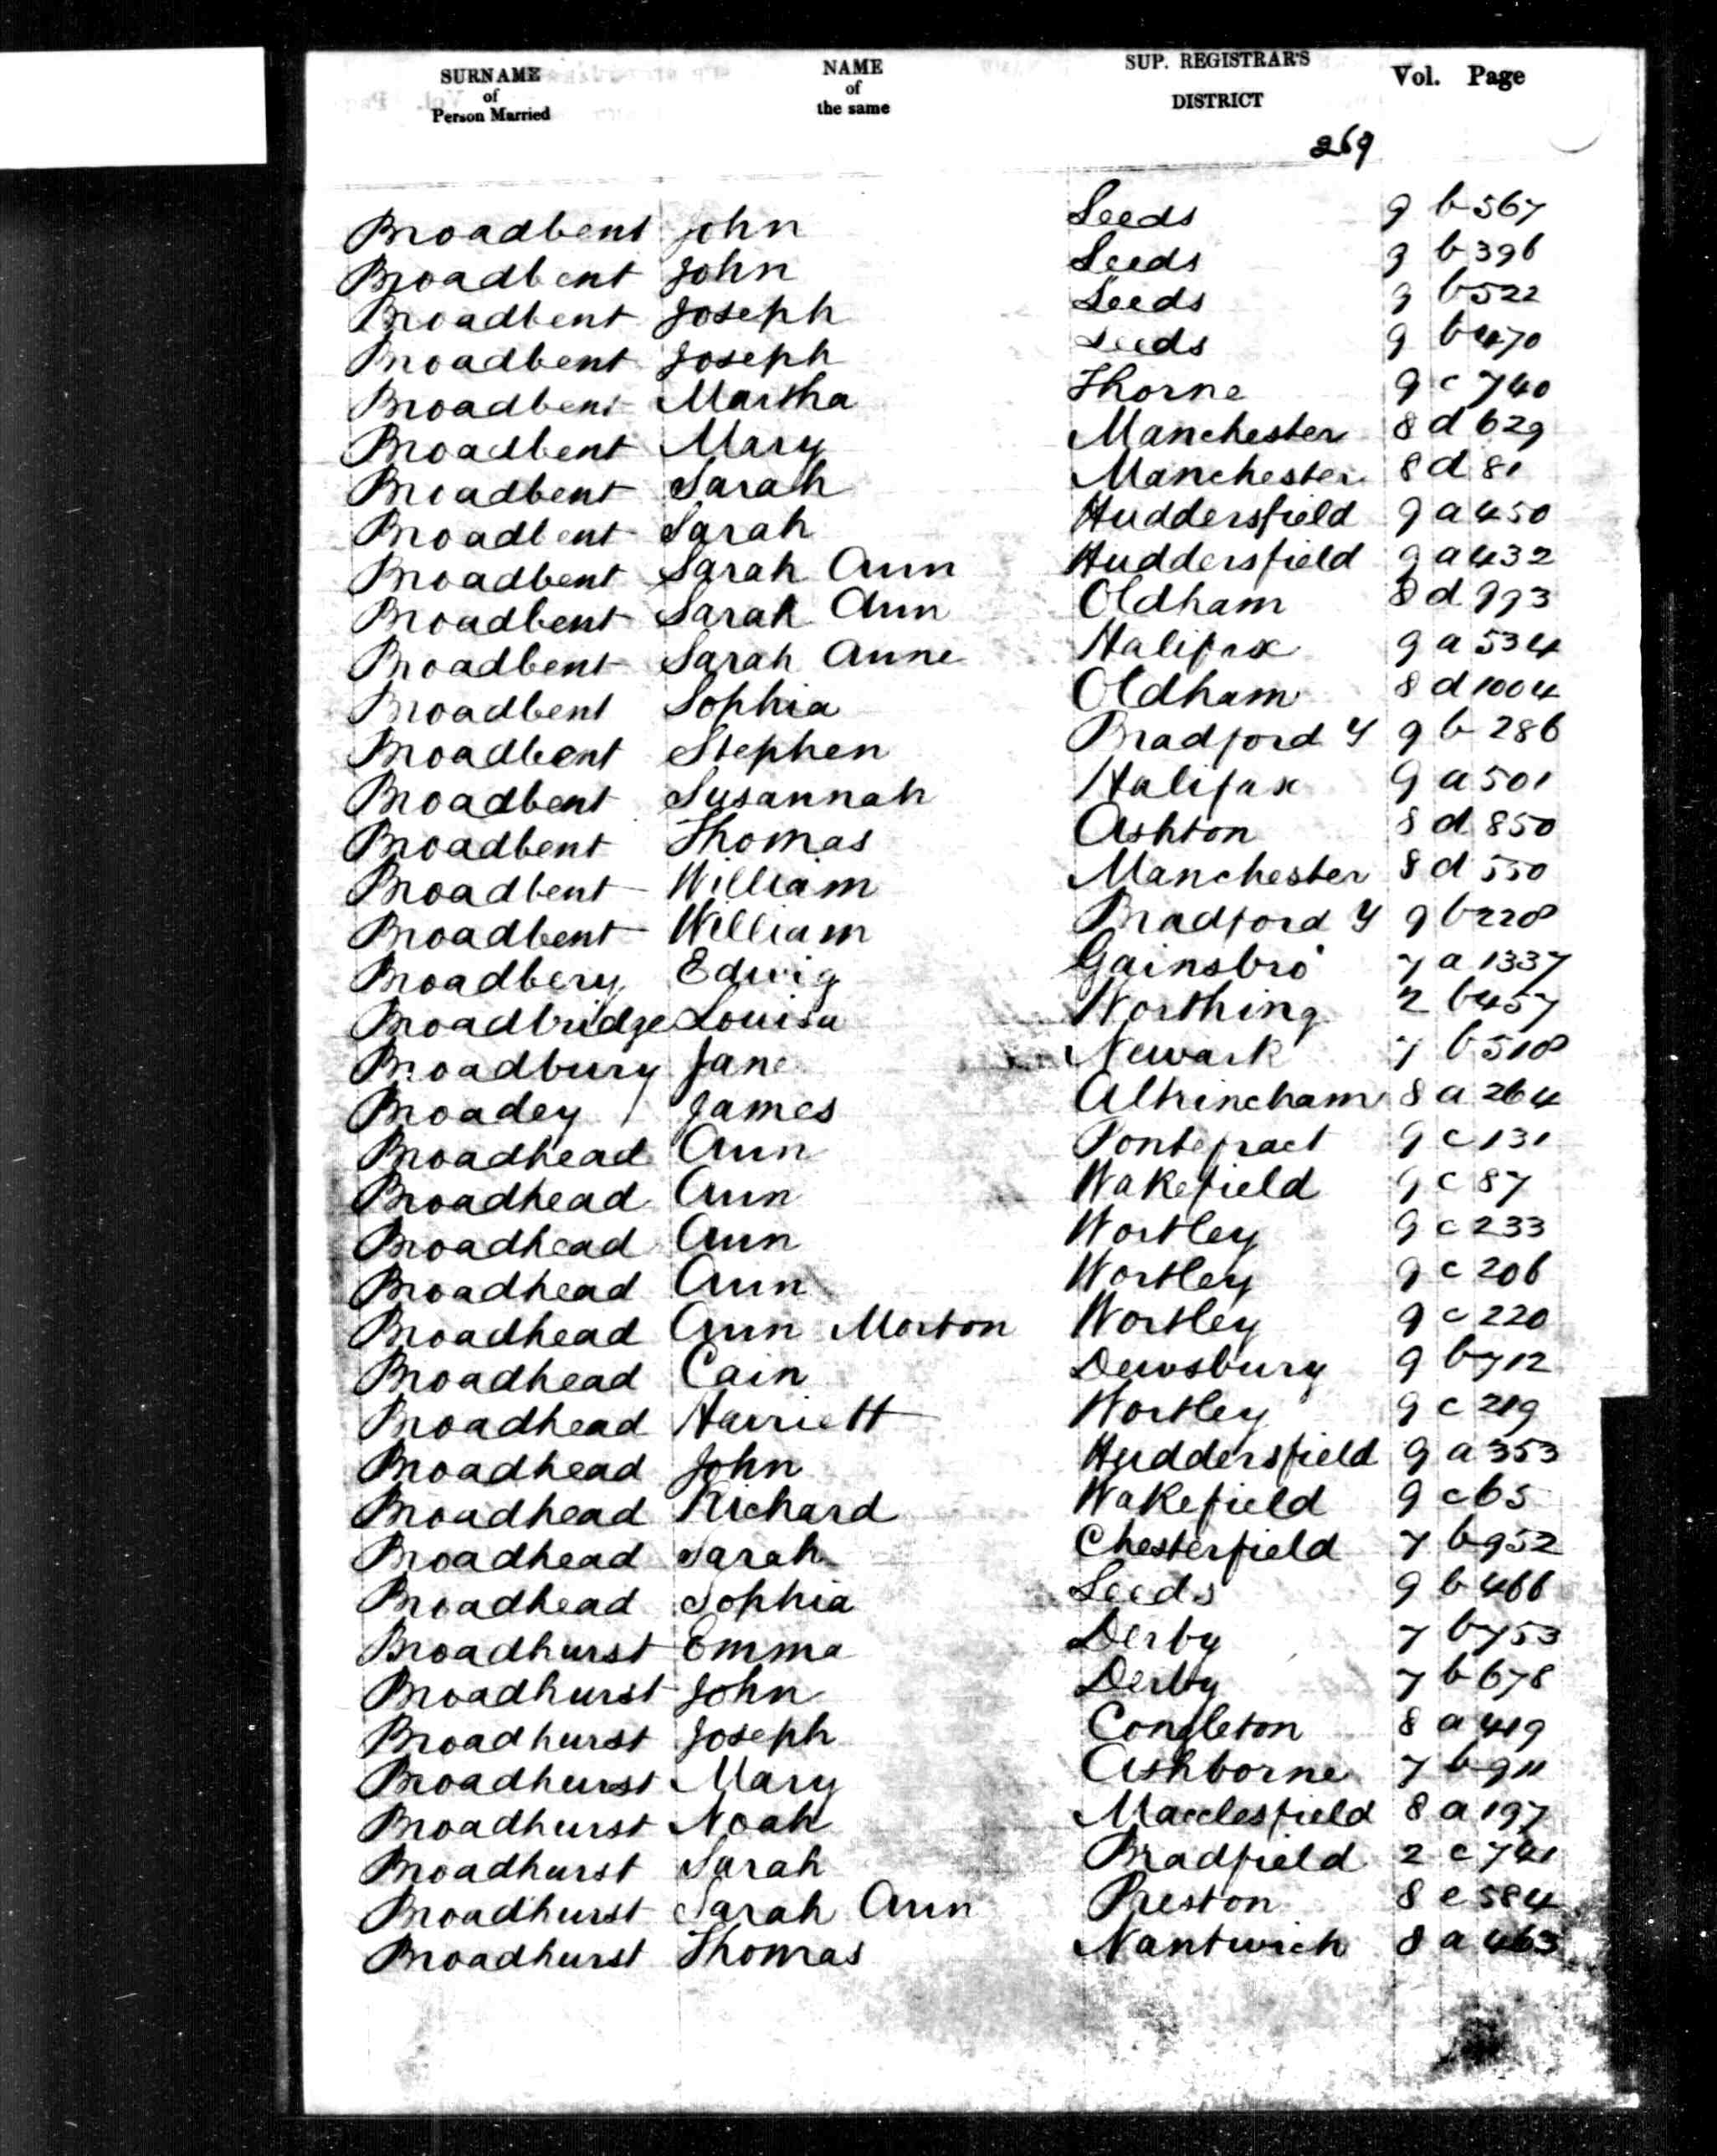 SURNAME of Person Married NAME of the same SUP. REGISTRAR'S DISTRICT Vol. Page
269
Broadbent John Leeds 9 b 567
Broadbent John Leeds 9 b 396
Broadbent Joseph Leeds 9 b 522
Broadbent Joseph Leeds 9 b 470
Broadbent Martha Thorne 9 c 740
Broadbent Mary Manchester 8 d 629
Broadbent Sarah Manchester 8 d 81
Broadbent Sarah Huddersfield 9 a 450
Broadbent Sarah Ann Huddersfield 9 a 432
Broadbent Sarah Ann Oldham 8 d 993
Broadbent Sarah Anne Halifax 9 a 534
Broadbent Sophia Oldham 8 d 1004
Broadbent Stephen Bradford Y 9 b 286
Broadbent Susannah Halifax 9 a 501
Broadbent Thomas Ashton 8 d 850
Broadbent William Manchester 8 d 550
Broadbent William Bradford Y 9 b 228
Broadbery Edwig Gainsbro' 7 a 1337
Broadbridge Louisa Worthing 2 b 457
Broadbury Jane Newark 7 b 518
Broadey James Altrincham 8 a 264
Broadhead Ann Pontefract 9 c 131
Broadhead Ann Wakefield 9 c 87
Broadhead Ann Wortley 9 c 233
Broadhead Ann Wortley 9 c 206
Broadhead Ann Morton Wortley 9 c 220
Broadhead Cain Dewsbury 9 b 712
Broadhead Harriett Wortley 9 c 219
Broadhead John Huddersfield 9 a 353
Broadhead Richard Wakefield 9 c 65
Broadhead Sarah Chesterfield 7 b 952
Broadhead Sophia Leeds 9 b 466
Broadhurst Emma Derby 7 b 753
Broadhurst John Derby 7 b 678
Broadhurst Joseph Congleton 8 a 419
Broadhurst Mary Ashborne 7 b 911
Broadhurst Noah Macclesfield 8 a 197
Broadhurst Sarah Bradfield 2 c 741
Broadhurst Sarah Ann Preston 8 e 584
Broadhurst Thomas Nantwich 8 a 463